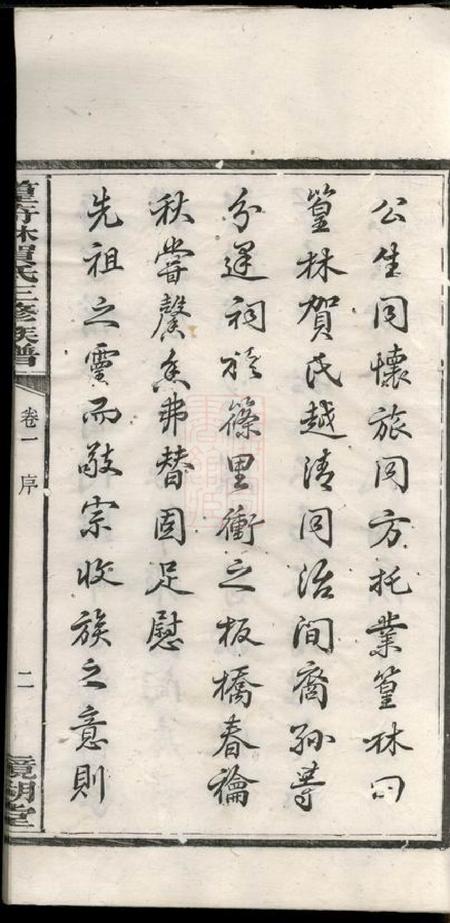 公生同懷旅同方托業篁林曰
篁林賀氏越清同治間裔孫等
分建祠於篠里衝之板橋春禴
秋嘗馨香弗替固足慰
先祖之靈而敬宗收族之意則
林賀氏三修族譜
卷一 序
二
鏡湖堂